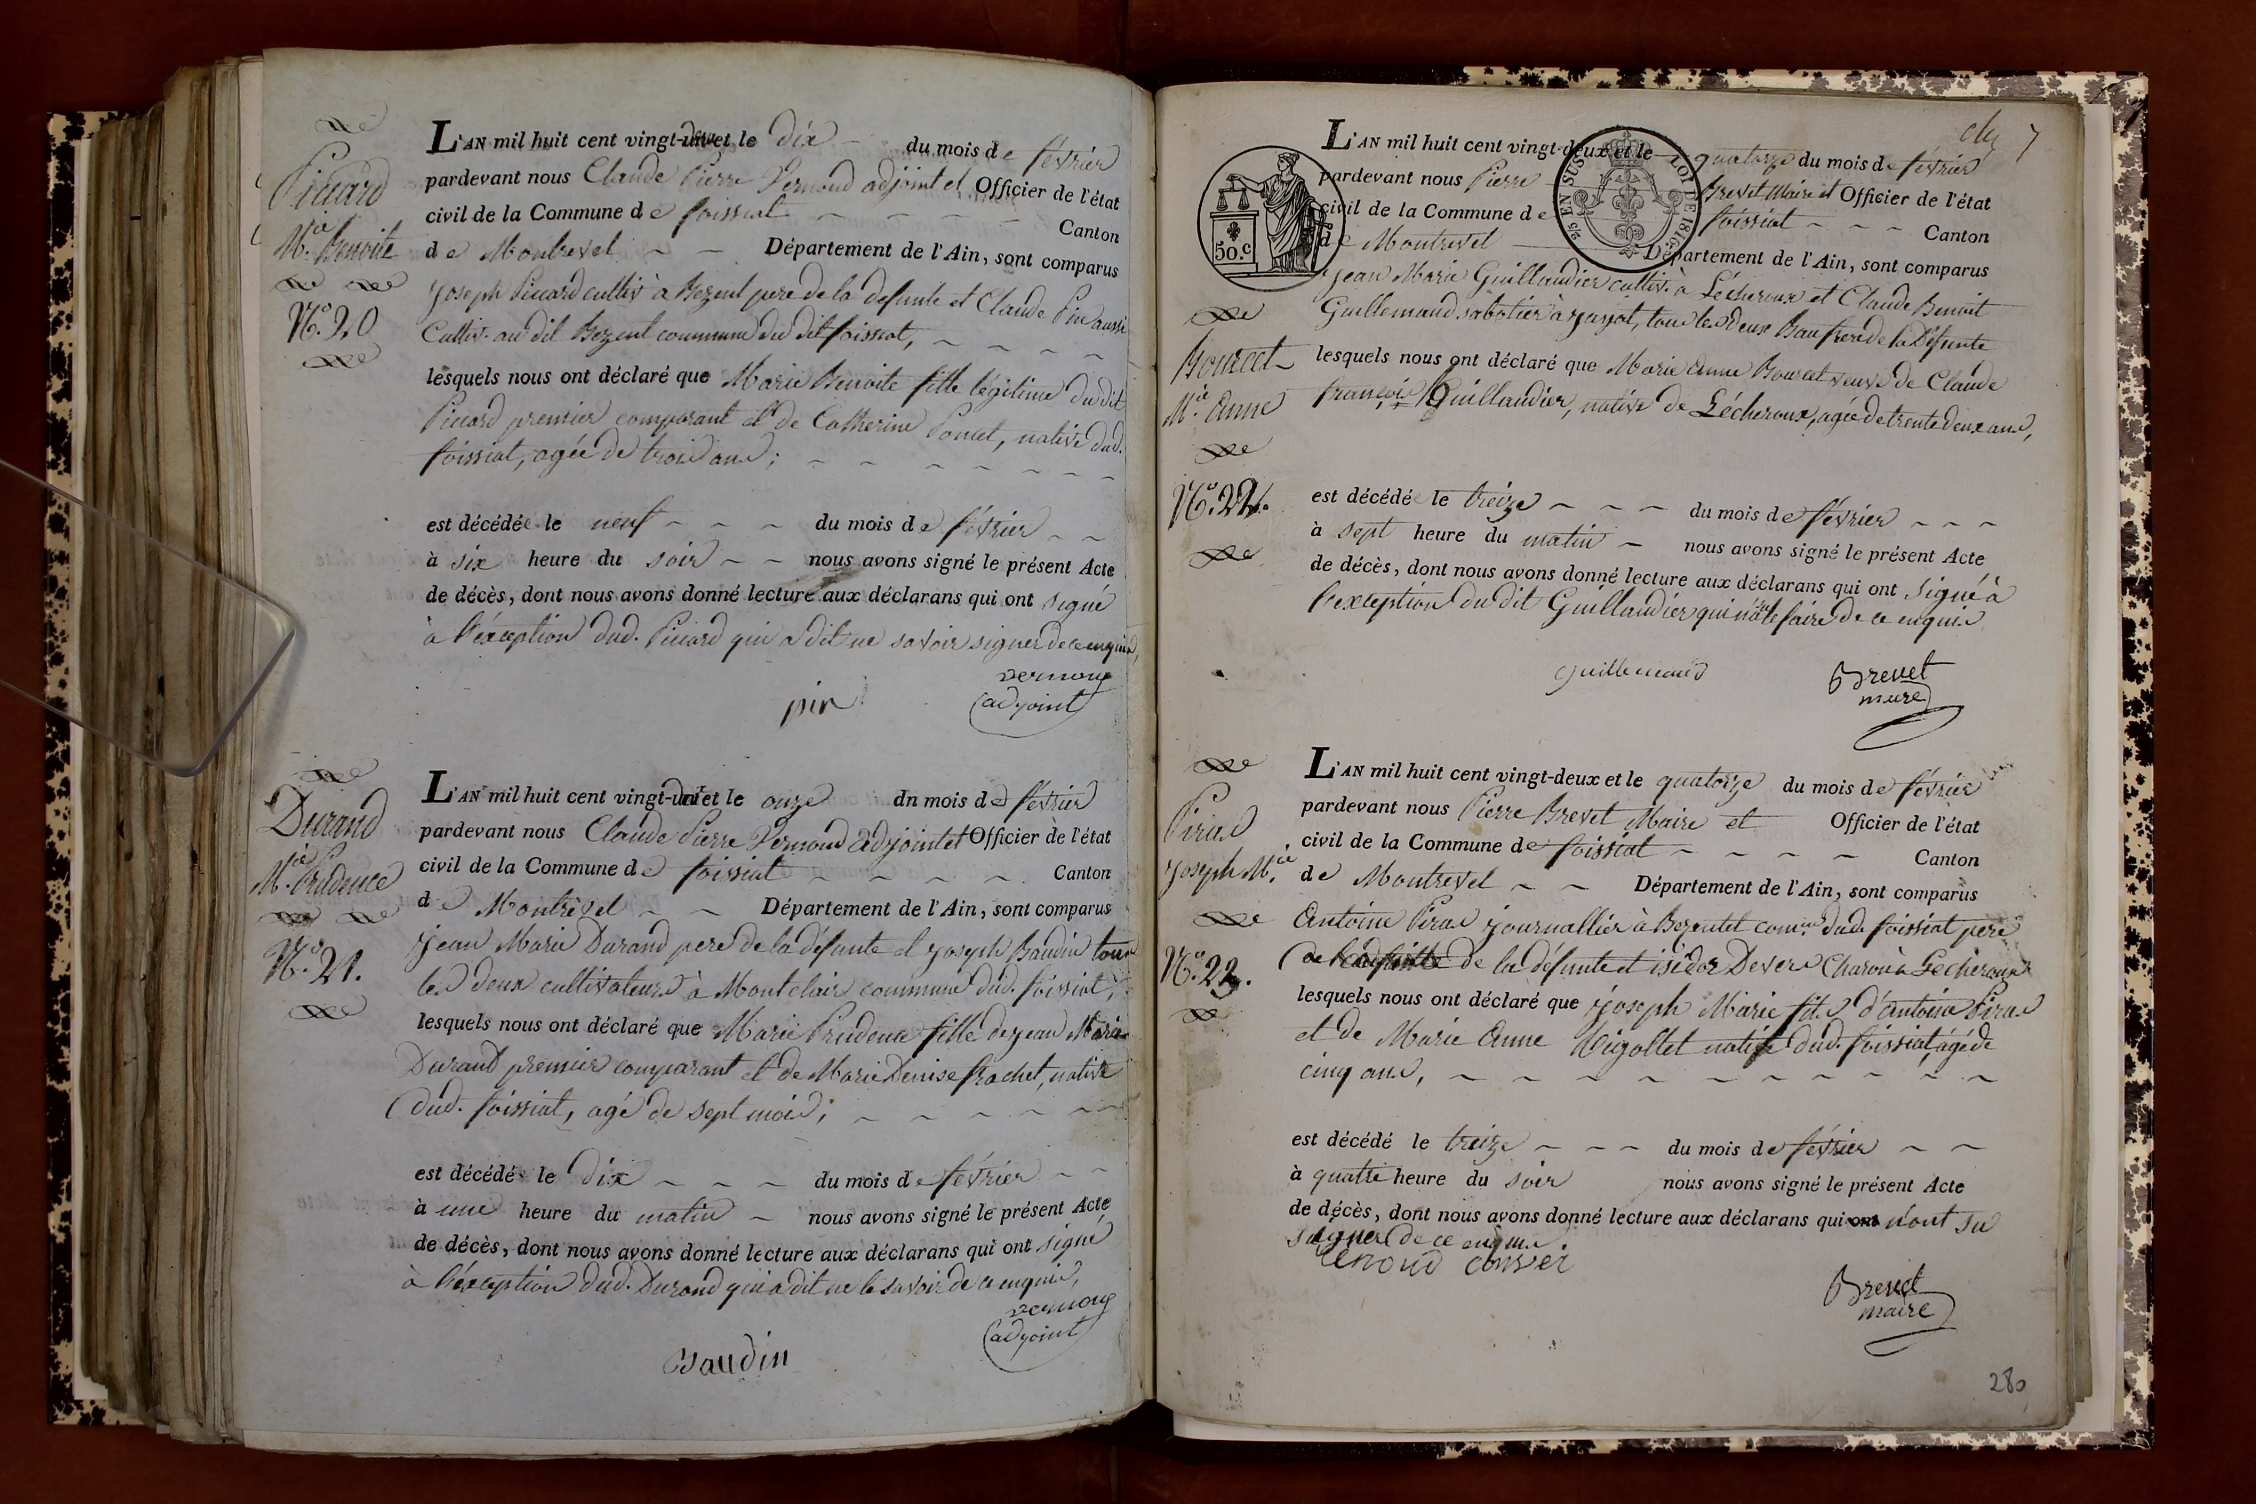 Picard
Mie. Benoite
No. 20
L'AN mil huit cent vingt-deux et le dix du mois de février
pardevant nous Claude Pierre Vernoud adjoint et Officier de l'état
civil de la Commune de foissiat Canton
de Montrevel Département de l'Ain, sont comparus
joseph Picard cultivr à Bezent pere de la defunte et Claude Pin aussi
Cultivr. au dit Bezent commune du dit foissiat,
lesquels nous ont déclaré que Marie Benoite fille légitime du dit
Picard premier comparant et de Catherine Poncet, native dud.
foissiat, agée de trois ans;
est décédée le neuf du mois de février
à six heure du soir nous avons signé le présent Acte
de décès, dont nous avons donné lecture aux déclarans qui ont signé
à l'éxception dud. Picard qui a dit ne savoir signer de ce enquis,
pin
vernoug
adjoint
Durand
Mie. Prudence
No. 21.
L'AN mil huit cent vingt-deux et le onze dn mois de février
pardevant nous Claude Pierre Vernoud adjoint et Officier de l'état
civil de la Commune de foissiat Canton
de Montrevel Département de l'Ain, sont comparus
jean Marie Durand pere de la défunte et joseph Baudin tous
les deux cultivateurs à Montclair commune dud. foissiat;
lesquels nous ont déclaré que Marie Prudence fille de jean Marie
Durand premier comparant et de Marie Denise Frachet, native
dud. foissiat, agé de sept mois;
est décédé le dix du mois de février
à une heure du matin nous avons signé le présent Acte
de décès, dont nous avons donné lecture aux déclarans qui ont signé
à l'éxception dud. Durand qui a dit ne le savoir de ce enquis,
vernoug
adjoint
Baudin
7
50.C
EN SUS
LOI DE 1816.
Bourcet
Mie. Anne
No. 22.
L'AN mil huit cent vingt-deux et le quatorze du mois de février
pardevant nous Pierre Brevet Maire et Officier de l'état
civil de la Commune de foissiat Canton
de Montrevel Département de l'Ain, sont comparus
jean Marie Guillaudier cultivr. à Lécheroux et Claude Benoit
Guillemaud sabotier à jayat, tous les deux Beau freres de la Défunte
lesquels nous ont déclaré que Marie Anne Bourcet veuve de Claude
françois Guillaudier, native de Lécheroux, agée de trente deux ans,
est décédé le treize du mois de février
à sept heure du matin nous avons signé le présent Acte
de décès, dont nous avons donné lecture aux déclarans qui ont signé à
l'exception du dit Guillaudier qui n'a su le faire de ce enquis
guillemaud
Brevet
mure
Piras
joseph Mie.
No. 23.
L'AN mil huit cent vingt-deux et le quatorze du mois de février
pardevant nous Pierre Brevet Maire et Officier de l'état
civil de la Commune de foissiat Canton
de Montrevel Département de l'Ain, sont comparus
Antoine Piras journallier à Bezentet comne. dud. foissiat pere
de la défunte et isidor Devers Charon à Lecheroux
lesquels nous ont déclaré que joseph Marie fils d'antoine Piras
et de Marie Anne Migollet natif dud. foissiat, agé de
cinq ans,
est décédé le treize du mois de février
à quatre heure du soir nous avons signé le présent Acte
de décès, dont nous avons donné lecture aux déclarans qui n'ont su
signer de ce enquis
Brevet
maire
280